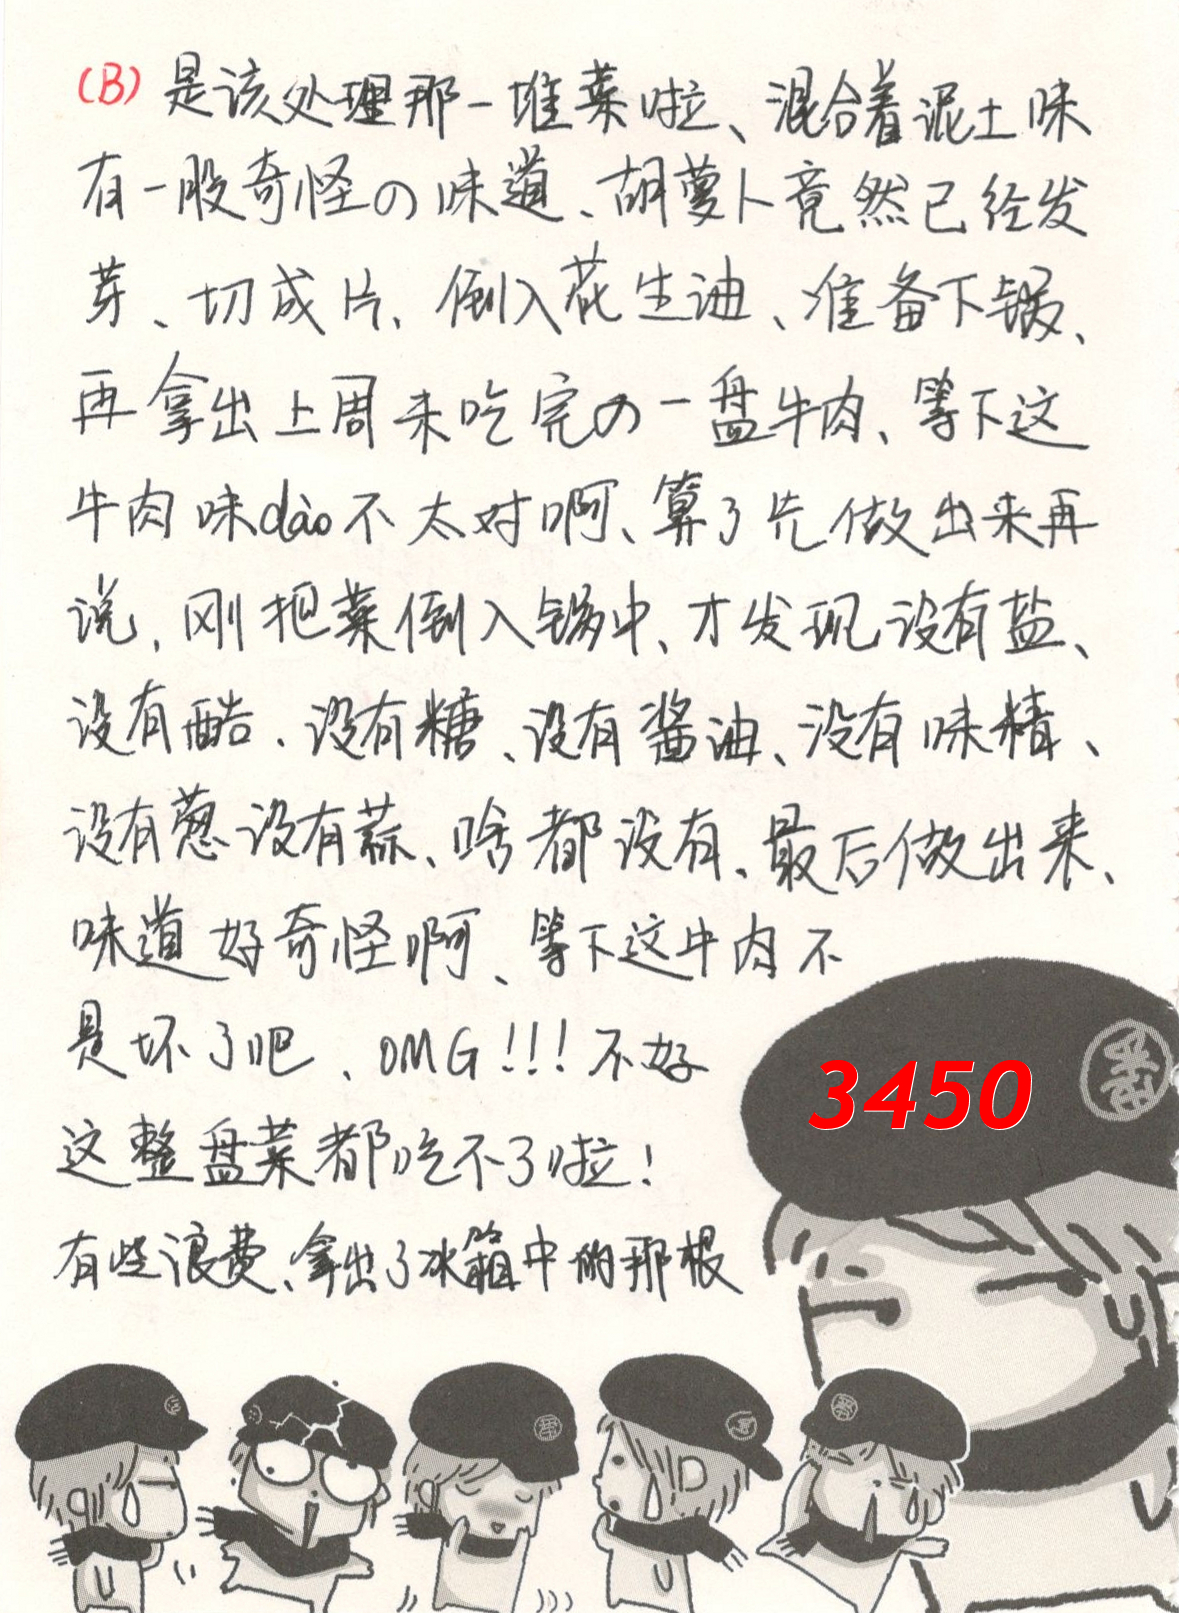 (B) 是该处理那一堆菜啦、混合着泥土味
有一股奇怪の味道、胡萝卜竟然已经发
芽、切成片、倒入花生油、准备下锅、
再拿出上周未吃完の一盘牛肉、等下这
牛肉味dào不太对啊、算了先做出来再
说、刚把菜倒入锅中、才发现没有盐、
没有酷、没有糖、没有酱油、没有味精、
没有葱没有蒜、啥都没有、最后做出来、
味道好奇怪啊、等下这牛肉不
是坏了吧、OMG!!!不好
3450
这整盘菜都吃不了啦!
有些浪费、拿出了冰箱中的那根